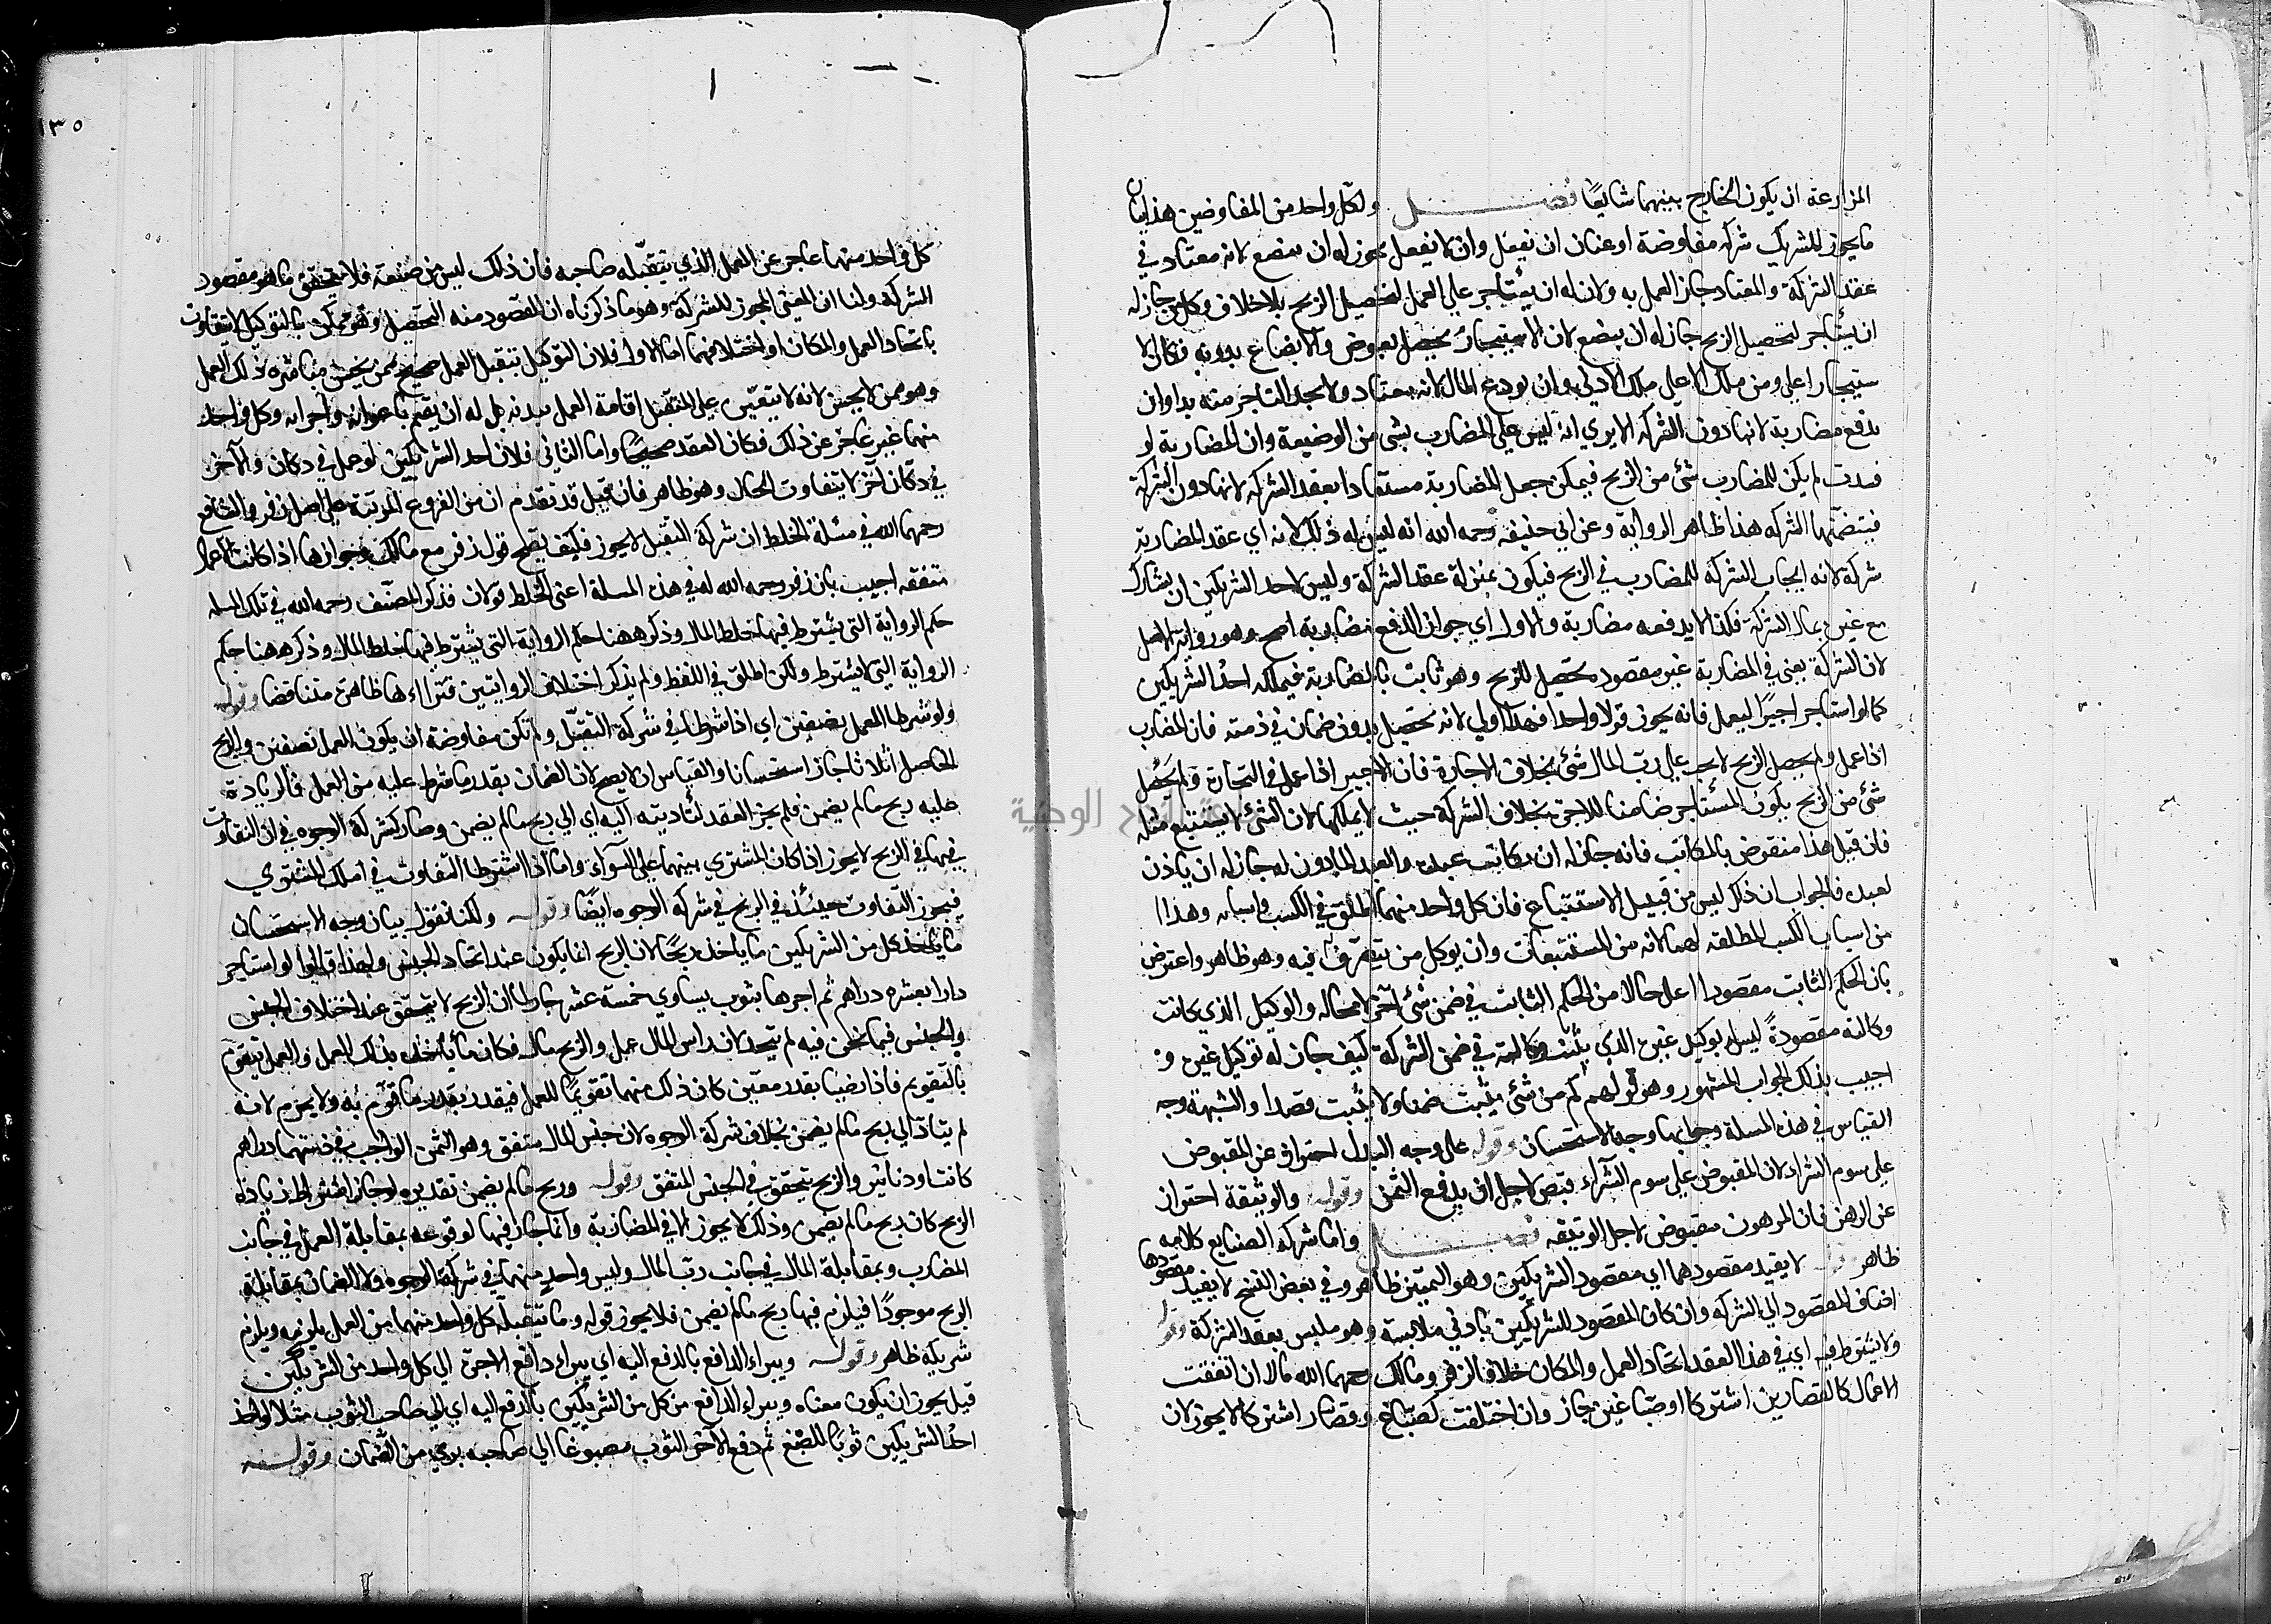 المزارعة ان يكون الخارج بينهما شايعًا فصل ولكل واحد من المفاوضين هذا بيان
ما يجوز للشريك شركة مفاوضة او عنان ان يفعل وان لا يفعل يجوز له ان يبضع لانه معتاد في
عقد الشركة والمعتاد جاز العمل به ولان له ان يستأجر على العمل لتحصيل الربح بلا خلاف وكل من جاز له
ان يستأجر لتحصيل الربح جاز له ان يبضع لان الاستيجار تحصيل بعوض والابضاع بدونه فكان الا
ستيجار اعلى ومن ملك الاعلى ملك الادنى وان يودع المال لانه معتاد ولا يجد التاجر منه بدا وان
يدفع مضاربة لانها دون الشركة الا يرى انه ليس على المضارب بشئ من الوضيعة وان المضاربة لو
فسدت لم يكن للمضارب شئ من الربح فيمكن جعل المضاربة مستفادا بعقد الشركة لانها دون الشركة
فيتضمنها الشركه هذا ظاهر الرواية وعن ابي حنيفه رحمه الله انه ليس له ذلك لانه اي عقد المضاربة
شركة لانه ايجاب الشركة للمضارب في الربح فيكون بمنزلة عقد الشركة وليس لاحد الشريكين ان يشارك
مع غيره بمال الشركة فكذا لا يدفعه مضاربة والاول اي جواز الدفع مضاربة اصح وهو رواية الاصل
لان الشركة يعنى في المضاربة غير مقصود تحصيل للربح وهو ثابت بالمضاربة فيملكه احد الشريكين
كما لو استاجر اجيرًا ليعمل فانه يجوز قولا واحدا فهذا اولى لانه تحصيل بدون ضمان في ذمته فان المضارب
اذا عمل ولم يحصل الربح لا يجب على رب المال شئ بخلاف الاجارة فان الاجير اذا عمل في التجارة ولم يحصل
شئ من الربح يكون المستأجر ضامنا للاجرة بخلاف الشركة حيث لا يملكها لان الشئ لا يستتبع مثله
فان قيل هذا منقوض بالمكاتب فانه جاز له ان يكاتب عبده والعبد المأذون له جاز له ان ياذن
لعبده فالجواب ان ذلك ليس من قبيل الاستتباع فان كل واحد منهما اطلق في الكسب واسبابه وهذا ا
من اسباب الكسب المطلقه لهما لانه من المستتبعات وان يوكل من يتصرف فيه وهو ظاهر واعترض
بان الحكم الثابت مقصودا اعلى حالا من الحكم الثابت في ضمن شئ آخر لا محاله والوكيل الذي كانت
وكالته مقصودةً ليس له توكيل غيره الذي يثبت وكالته في ضمن الشركة كيف جاز له توكيل غيره و
اجيب بذلك الجواب المشهور وهو قولهم كم من شئ يثبت ضمنا ولا يثبت قصدا والشبهة وجه
القياس في هذه المسلة وجوابها وجه الاستحسان وقوله على وجه البدل احتراز عن المقبوض
على سوم الشراء لان المقبوض على سوم الشرآء قبض لاجل ان يدفع الثمن وقوله والوثيقة احتراز
عن الرهن فان المرهون مقبوض لاجل الوثيقه فصل واما شركه الصنايع كلامه
ظاهر لا يفيد مقصودهما اي مقصود الشريكين وهو التمييز ظاهر وفي بعض النسخ لا يفيد مقصودها
اضاف المقصود الى الشركه وان كان المقصود للشريكين بادنى ملابسة وهو ملبس بعقد الشركة وقوله
ولا يشترط فيه اي في هذا العقد اتحاد العمل والمكان خلافا لزفر ومالك رحمهما الله قالا ان اتفقت
الاعمال كالقصارين اشتركا او صباغين جاز وان اختلفت كصباغ وقصار اشتركا لا يجوز لان
١٣٥
كل واحد منهما عاجز عن العمل الذي يتقبله صاحبه فان ذلك ليس من صنعته فلا يتحقق ما هو مقصود
الشركة ولنا ان المعنى المجوز للشركة وهو ما ذكرناه ان المقصود منه التحصيل وهو ممكن بالتوكيل لا يتفاوت
باتحاد العمل والمكان او اختلافهما اما الاول فلان التوكيل بتقبل العمل صحيح ممن يحسن مباشرة ذلك العمل
وهو ممن لا يحسن لانه لا يتعين على المتقبل اقامة العمل بيديه بل له ان يقيم باعوانه واجرائه وكل واحد
منهما غير عاجز عن ذلك فكان العقد صحيحًا واما الثاني فلان احد الشريكين لو عمل في دكان والآخر
في دكان آخر لا يتفاوت الحال وهو ظاهر فان قيل قد تقدم ان من الفروع المرتبة على اصل زفر والشافعي
رحمهما الله في مسئلة الخلط ان شركة التقبل لا يجوز فكيف يصح قول زفر مع مالك بجوازها اذا كانت الاعمال
متفقه اجيب بان زفر رحمه الله له في هذه المسلة اعنى الخلط قولان فذكر المصنف رحمه الله في تلك المسله
حكم الرواية التى يشترط فيها خلط المال وذكر ههنا حكم الرواية التى يشترط فيها خلط المال وذكر ههنا حكم
الرواية التى لا يشترط ولكن اطلق في اللفظ ولم يذكر اختلاف الروايتين فتراءى ظاهره متناقضا وقوله
ولو شرطا العمل نصفين اي اذا شرطا في شركة التقبل ولم تكن مفاوضة ان يكون العمل نصفين والربح
الحاصل اثلاثا جاز استحسانا والقياس ان لا يصح لان الضمان بقدر ما شرط عليه من العمل فالزيادة
عليه ربح ما لم يضمن فلم يجز العقد لتأديته اليه اي الى ربح ما لم يضمن وصار كشركة الوجوه في ان التفاوت
فيها في الربح لا يجوز اذا كان المشترى بينهما على السوآء واما اذا اشترطا التفاوت في ملك المشترى
فيجوز التفاوت حينئذ في الربح في شركة الوجوه ايضًا وقوله ولكنا نقول بيان وجه الاستحسان
ما يأخذه كل من الشريكين ما ياخذه ربحًا لان الربح انما يكون عند اتحاد الجنس ولهذا قالوا لو استاجر
دارا بعشرة دراهم ثم اجرها بثوب يساوي خمسة عشر جاز لما ان الربح لا يتحقق عند اختلاف الجنس
والجنس فيما نحن فيه لم يتحد لان راس المال عمل والربح مال فكان ما يأخذه بدل العمل والعمل يتقوم
بالتقويم فاذا رضيا بقدر معين كان ذلك منهما تقويمًا للعمل فيقدر بقدر ما قوم به ولا يحرم لانه
لم يتأد الى ربح ما لم يضمن بخلاف شركة الوجوه لان جنس المال متفق وهو الثمن الواجب في ذمتهما دراهم
كانت او دنانير والربح يتحقق في الجنس المتفق وقوله وربح ما لم يضمن تقديره لو جاز اشتراط زيادة
الربح كان ربح ما لم يضمن وذلك لا يجوز الا في المضاربة وانما جاز فيها لوقوعه بمقابلة العمل في جانب
المضارب وبمقابلة المال في جانب رب المال وليس واحد منهما في شركة الوجوه ولا الضمان بمقابلة
الربح موجودًا فيلزم فيها ربح ما لم يضمن فلا يجوز قوله وما يتقبله كل واحد منهما من العمل يلزمه ويلزم
شريكه ظاهر وقوله ويبراء الدافع بالدفع اليه اي يبراء دافع الاجرة الى كل واحد من الشريكين
قيل يجوز ان يكون معناه ويبراء الدافع من كل من الشريكين بالدفع اليه اي الى صاحب الثوب مثلا لو اخذ
احد الشريكين ثوبًا للصبغ ثم دفع الآخر الثوب مصبوغا الى صاحبه برئ من الضمان وقوله